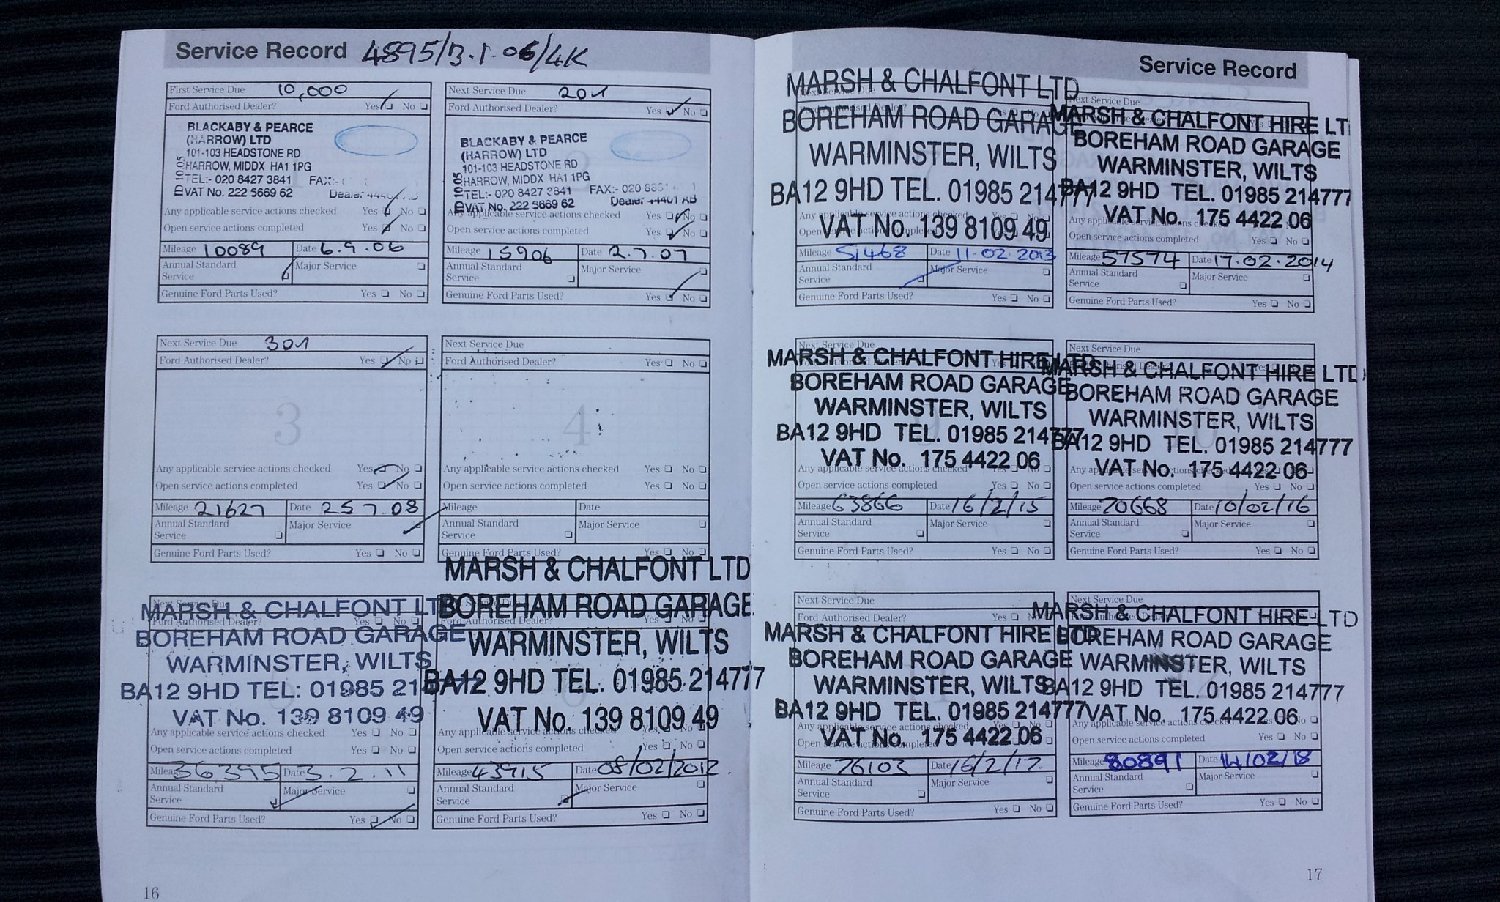 Service Record 4895/3.1.06/4K
First Service Due 10,000
Ford Authorised Dealer? Yes No
BLACKABY & PEARCE
(HARROW) LTD
101-103 HEADSTONE RD
HARROW, MIDDX HA1 1PG
TEL:- 020 8427 3841 FAX:-
VAT No. 222 5669 62 Dealer
Any applicable service actions checked Yes No
Open service actions completed Yes No
Mileage 10089 Date 6.9.06
Annual Standard Service Major Service
Genuine Ford Parts Used? Yes No
Next Service Due 20
Ford Authorised Dealer? Yes No
BLACKABY & PEARCE
(HARROW) LTD
101-103 HEADSTONE RD
HARROW, MIDDX HA1 1PG
TEL:- 020 8427 3841 FAX:- 020
VAT No. 222 5669 62 Dealer
Any applicable service actions checked Yes No
Open service actions completed Yes No
Mileage 15906 Date 2.7.07
Annual Standard Service Major Service
Genuine Ford Parts Used? Yes No
Next Service Due 30
Ford Authorised Dealer? Yes No
3
Any applicable service actions checked Yes No
Open service actions completed Yes No
Mileage 21627 Date 25 7.08
Annual Standard Service Major Service
Genuine Ford Parts Used? Yes No
Next Service Due
Ford Authorised Dealer? Yes No
4
Any applicable service actions checked Yes No
Open service actions completed Yes No
Mileage Date
Annual Standard Service Major Service
Genuine Ford Parts Used? Yes No
MARSH & CHALFONT LTD
BOREHAM ROAD GARAGE
WARMINSTER, WILTS
BA12 9HD TEL: 01985 21
VAT No. 139 8109 49
Any applicable service actions checked Yes No
Open service actions completed Yes No
Mileage 36395 Date 3.2.11
Annual Standard Service Major Service
Genuine Ford Parts Used? Yes No
MARSH & CHALFONT LTD
BOREHAM ROAD GARAGE
WARMINSTER, WILTS
BA12 9HD TEL. 01985 214777
VAT No. 139 8109 49
Open service actions completed Yes No
Mileage 43915 Date 08/02/2012
Annual Standard Service Major Service
Genuine Ford Parts Used? Yes No
16
Service Record
MARSH & CHALFONT LTD
BOREHAM ROAD GARAGE
WARMINSTER, WILTS
BA12 9HD TEL. 01985 214777
VAT No. 139 8109 49
Mileage 51468 Date 11.02.2013
Annual Standard Service Major Service
Genuine Ford Parts Used? Yes No
Next Service Due
MARSH & CHALFONT HIRE LT
BOREHAM ROAD GARAGE
WARMINSTER, WILTS
BA12 9HD TEL. 01985 214777
VAT No. 175 4422 06
Open service actions completed Yes No
Mileage 57574 Date 17.02.2014
Annual Standard Service Major Service
Genuine Ford Parts Used? Yes No
Next Service Due
MARSH & CHALFONT HIRE LTD
BOREHAM ROAD GARAGE
WARMINSTER, WILTS
BA12 9HD TEL. 01985 214777
VAT No. 175 4422 06
Any applicable service actions checked
Open service actions completed Yes No
Mileage 63866 Date 16/2/15
Annual Standard Service Major Service
Genuine Ford Parts Used? Yes No
Next Service Due
MARSH & CHALFONT HIRE LTD
BOREHAM ROAD GARAGE
WARMINSTER, WILTS
BA12 9HD TEL. 01985 214777
VAT No. 175 4422 06
Open service actions completed Yes No
Mileage 70668 Date 10/02/16
Annual Standard Service Major Service
Genuine Ford Parts Used? Yes No
Next Service Due
Ford Authorised Dealer? Yes
MARSH & CHALFONT HIRE LTD
BOREHAM ROAD GARAGE
WARMINSTER, WILTS
BA12 9HD TEL. 01985 214777
VAT No. 175 4422 06
Mileage 76103 Date 16/2/17
Annual Standard Service Major Service
Genuine Ford Parts Used? Yes No
Next Service Due
MARSH & CHALFONT HIRE LTD
BOREHAM ROAD GARAGE
WARMINSTER, WILTS
BA12 9HD TEL. 01985 214777
VAT No. 175 4422 06
Open service actions completed Yes No
Mileage 80891 Date 14/02/18
Annual Standard Service Major Service
Genuine Ford Parts Used? Yes No
17